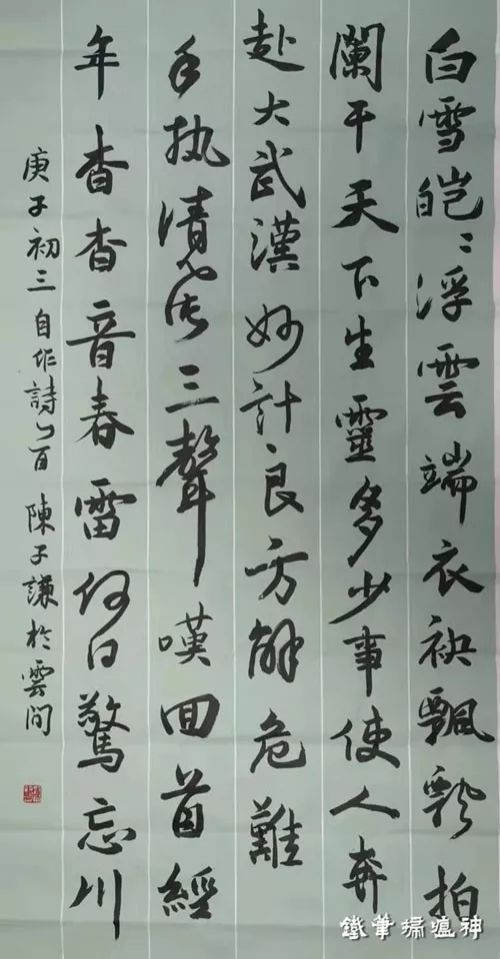 白雪皑々浮雲端衣袂飄飄拍
闌干天下生靈多少事使人奔
赴大武漢妙計良方解危難
手执清三聲嘆回首經
年杳杳音春雷何日驚忘川
庚子初三自作詩一首 陳子謙於雲间
鐵筆掃瘟神